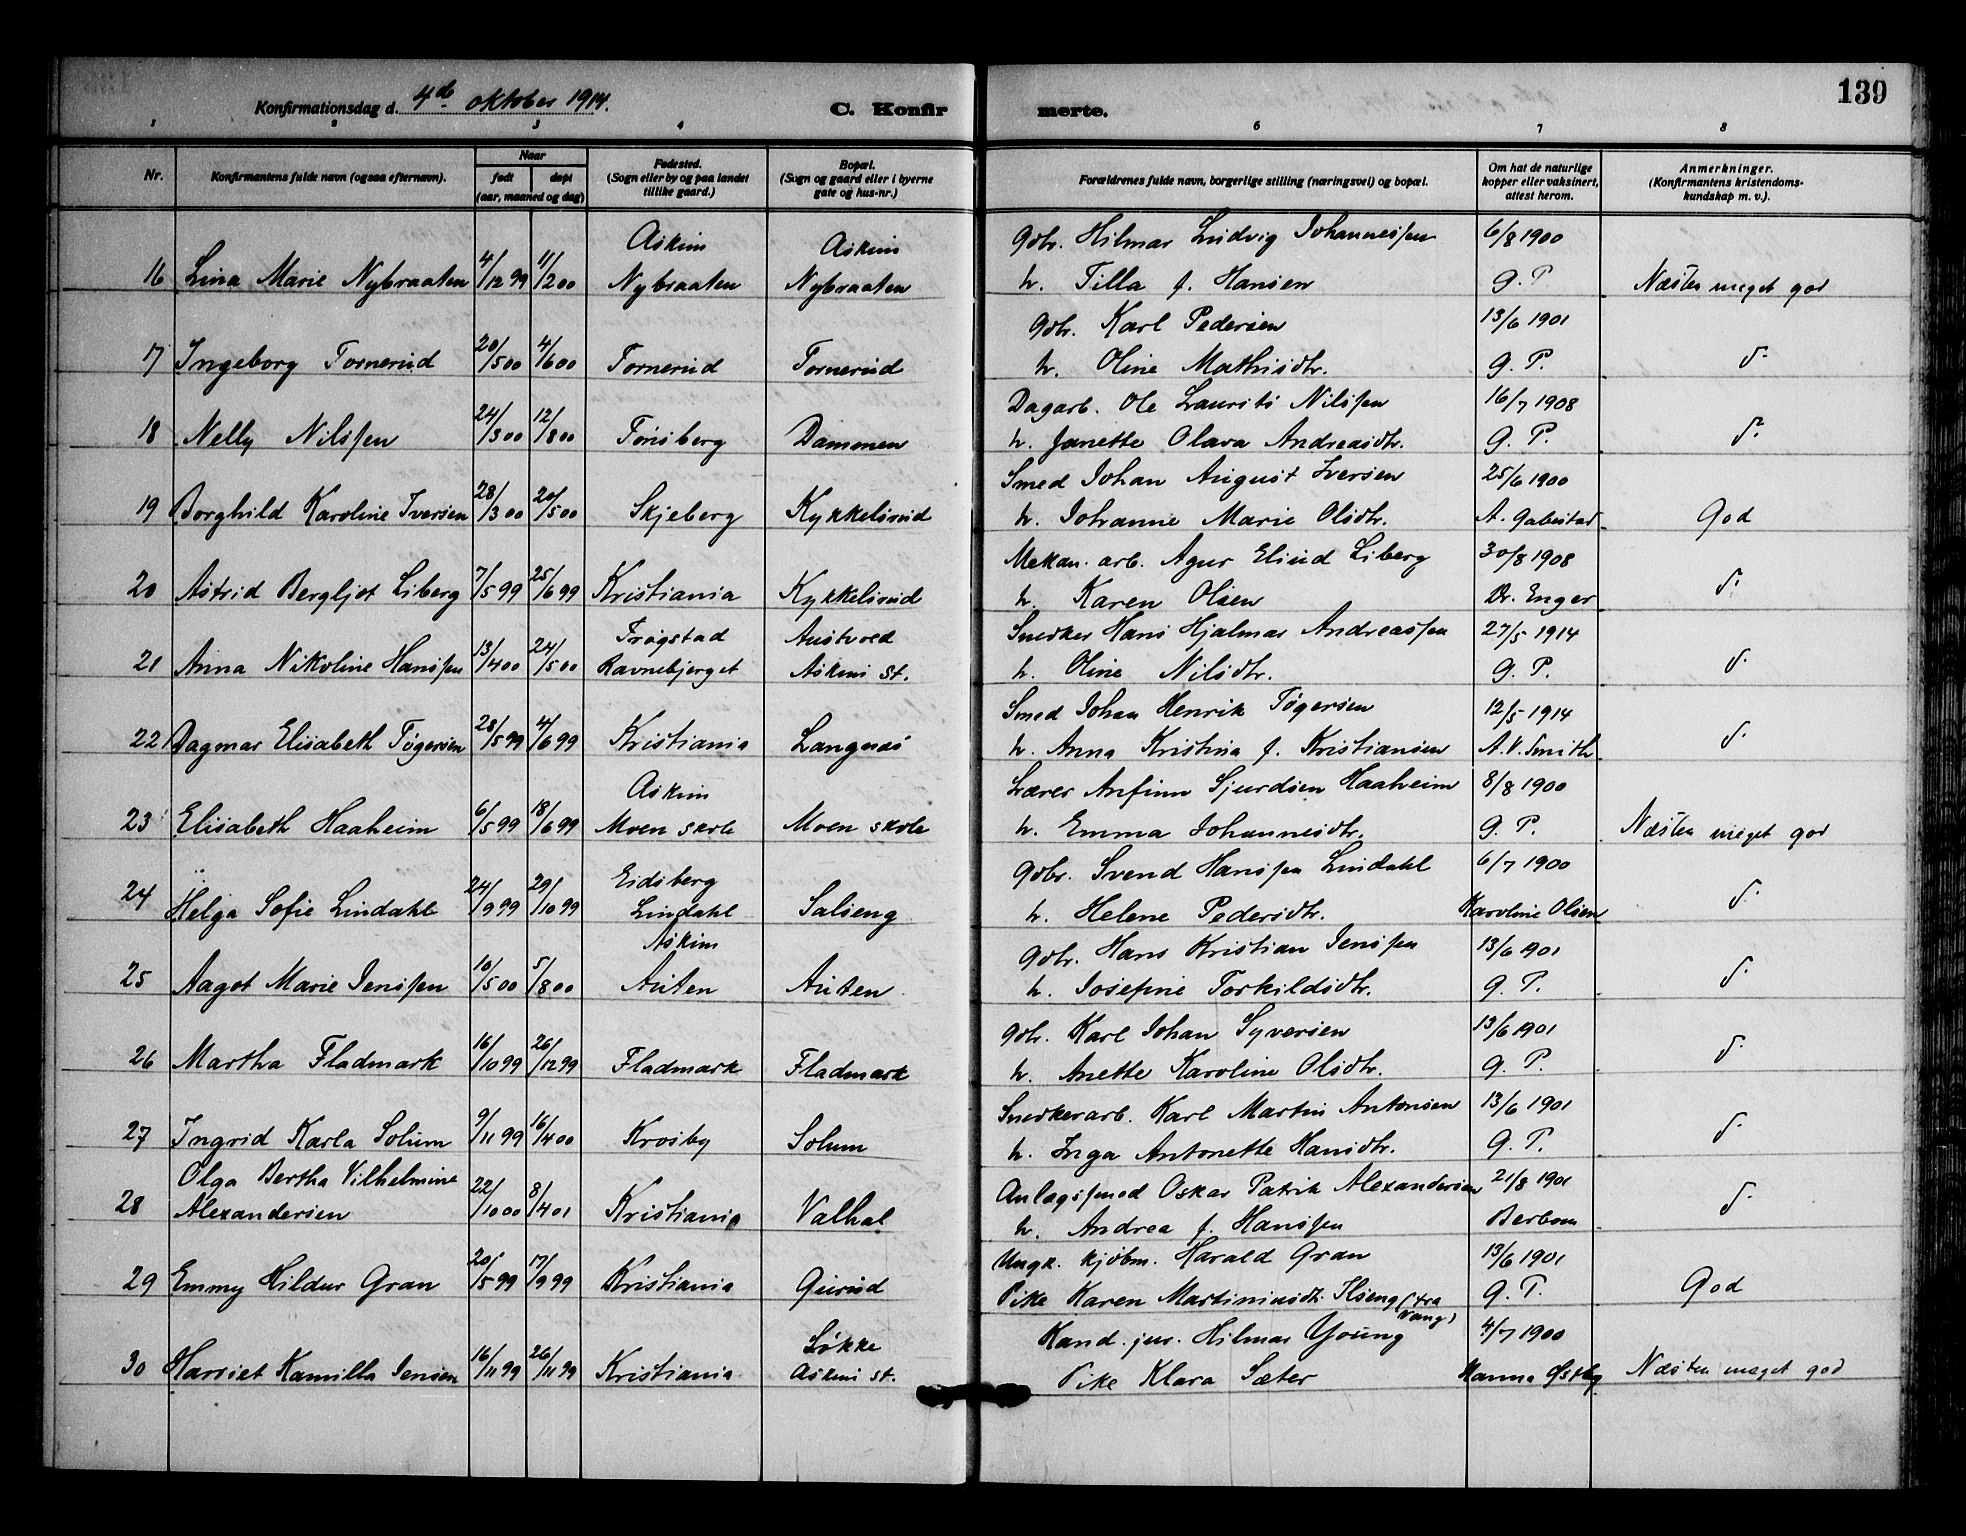 139
Konfirmationsdag d. 4de oktober 1914.
C. Konfirmerte.
1 2 3 4 6 7 8
Nr.
Konfirmantens fulde navn (ogsaa efternavn).
Naar
født døpt
(aar, maaned og dag)
Fødested.
(Sogn eller by og paa landet
tillike gaard.)
Bopæl.
(Sogn og gaard eller i byerne
gate og hus-nr.)
Forældrenes fulde navn, borgerlige stilling (næringsvei) og bopæl.
Om hat de naturlige
kopper eller vaksinert,
attest herom.
Anmerkninger.
(Konfirmantens kristendoms-
kundskap m. v.).
Askim Askim Gbr. Hilmar Ludvig Johannessen 6/8 1900
16 Lina Marie Nybraaten 4/12 99 11/2 00 Nybraaten Nybraaten h. Tilla f. Hansen G. P. Næsten meget god
Gbr. Karl Pedersen 13/6 1901
17 Ingeborg Tornerud 20/5 00 4/6 00 Tornerud Tornerud h. Oline Mathisdtr. G. P. d.
Dagarb. Ole Laurits Nilssen 16/7 1908
18 Nelly Nilssen 24/3 00 12/8 00 Tønsberg Dammen h. Janette Olava Andreasdtr. G. P. d.
Smed Johan August Iversen 25/6 1900
19 Borghild Karoline Iversen 28/3 00 20/5 00 Skjeberg Kykkelsrud h. Johanne Marie Olsdtr. A. Gabestad God
Mekan. arb. Agur Eliud Liberg 30/8 1908
20 Astrid Bergljot Liberg 7/5 99 25/6 99 Kristiania Kykkelsrud h. Karen Olsen Dr. Enger d.
Trøgstad Austved Snedker Hans Hjalmar Andreassen 27/5 1914
21 Anna Nikoline Hanssen 13/4 00 24/5 00 Ravnebjerget Askim st. h. Oline Nilsdtr. G. P. d.
Smed Johan Henrik Tøgersen 12/5 1914
22 Dagmar Elisabeth Tøgersen 28/5 99 4/6 99 Kristiania Langnæs h. Anna Kristina f. Kristiansen A. V. Smith d.
Askim Lærer Anfinn Sjurdsen Haaheim 8/8 1900
23 Elisabeth Haaheim 6/5 99 18/6 99 Moen skole Moen skole h. Emma Johannesdtr. G. P. Næsten meget god
Eidsberg Gbr. Svend Hanssen Lindahl 6/7 1900
24 Helga Sofie Lindahl 24/9 99 29/10 99 Lindahl Salseng h. Helene Pedersdtr. Karoline Olsen d.
Askim Gbr. Hans Kristian Jenssen 13/6 1901
25 Aagot Marie Jenssen 10/5 00 5/8 00 Auten Auten h. Josefine Torkildsdtr. G. P. d.
Gbr. Karl Johan Syversen 13/6 1901
26 Martha Fladmark 16/10 99 26/12 99 Fladmark Fladmark h. Anette Karoline Olsdtr. G. P. d.
Snedkerarb. Karl Martin Antonsen 13/6 1901
27 Ingrid Karla Solum 9/11 99 16/4 00 Krosby Solum h. Inga Antonette Hansdtr. G. P. d.
Olga Bertha Vilhelmine Anlagssmed Oskar Patrik Alexandersen 21/8 1901
28 Alexandersen 22/10 00 8/4 01 Kristiania Valhal h. Andrea f. Hanssen Berbom d.
Ungk. kjøbm. Harald Gran 13/6 1901
29 Emmy Hildur Gran 20/5 99 17/9 99 Kristiania Gurud Pike Karen Martiniusdt. Ilseng (fra Vang) G. P. God
Løkke Kand. jur. Hilmar Young 4/7 1900
30 Harriet Kamilla Jensen 16/11 99 26/11 99 Kristiania Askim st. Pike Klara Sæter Hanna Østby Næsten meget god